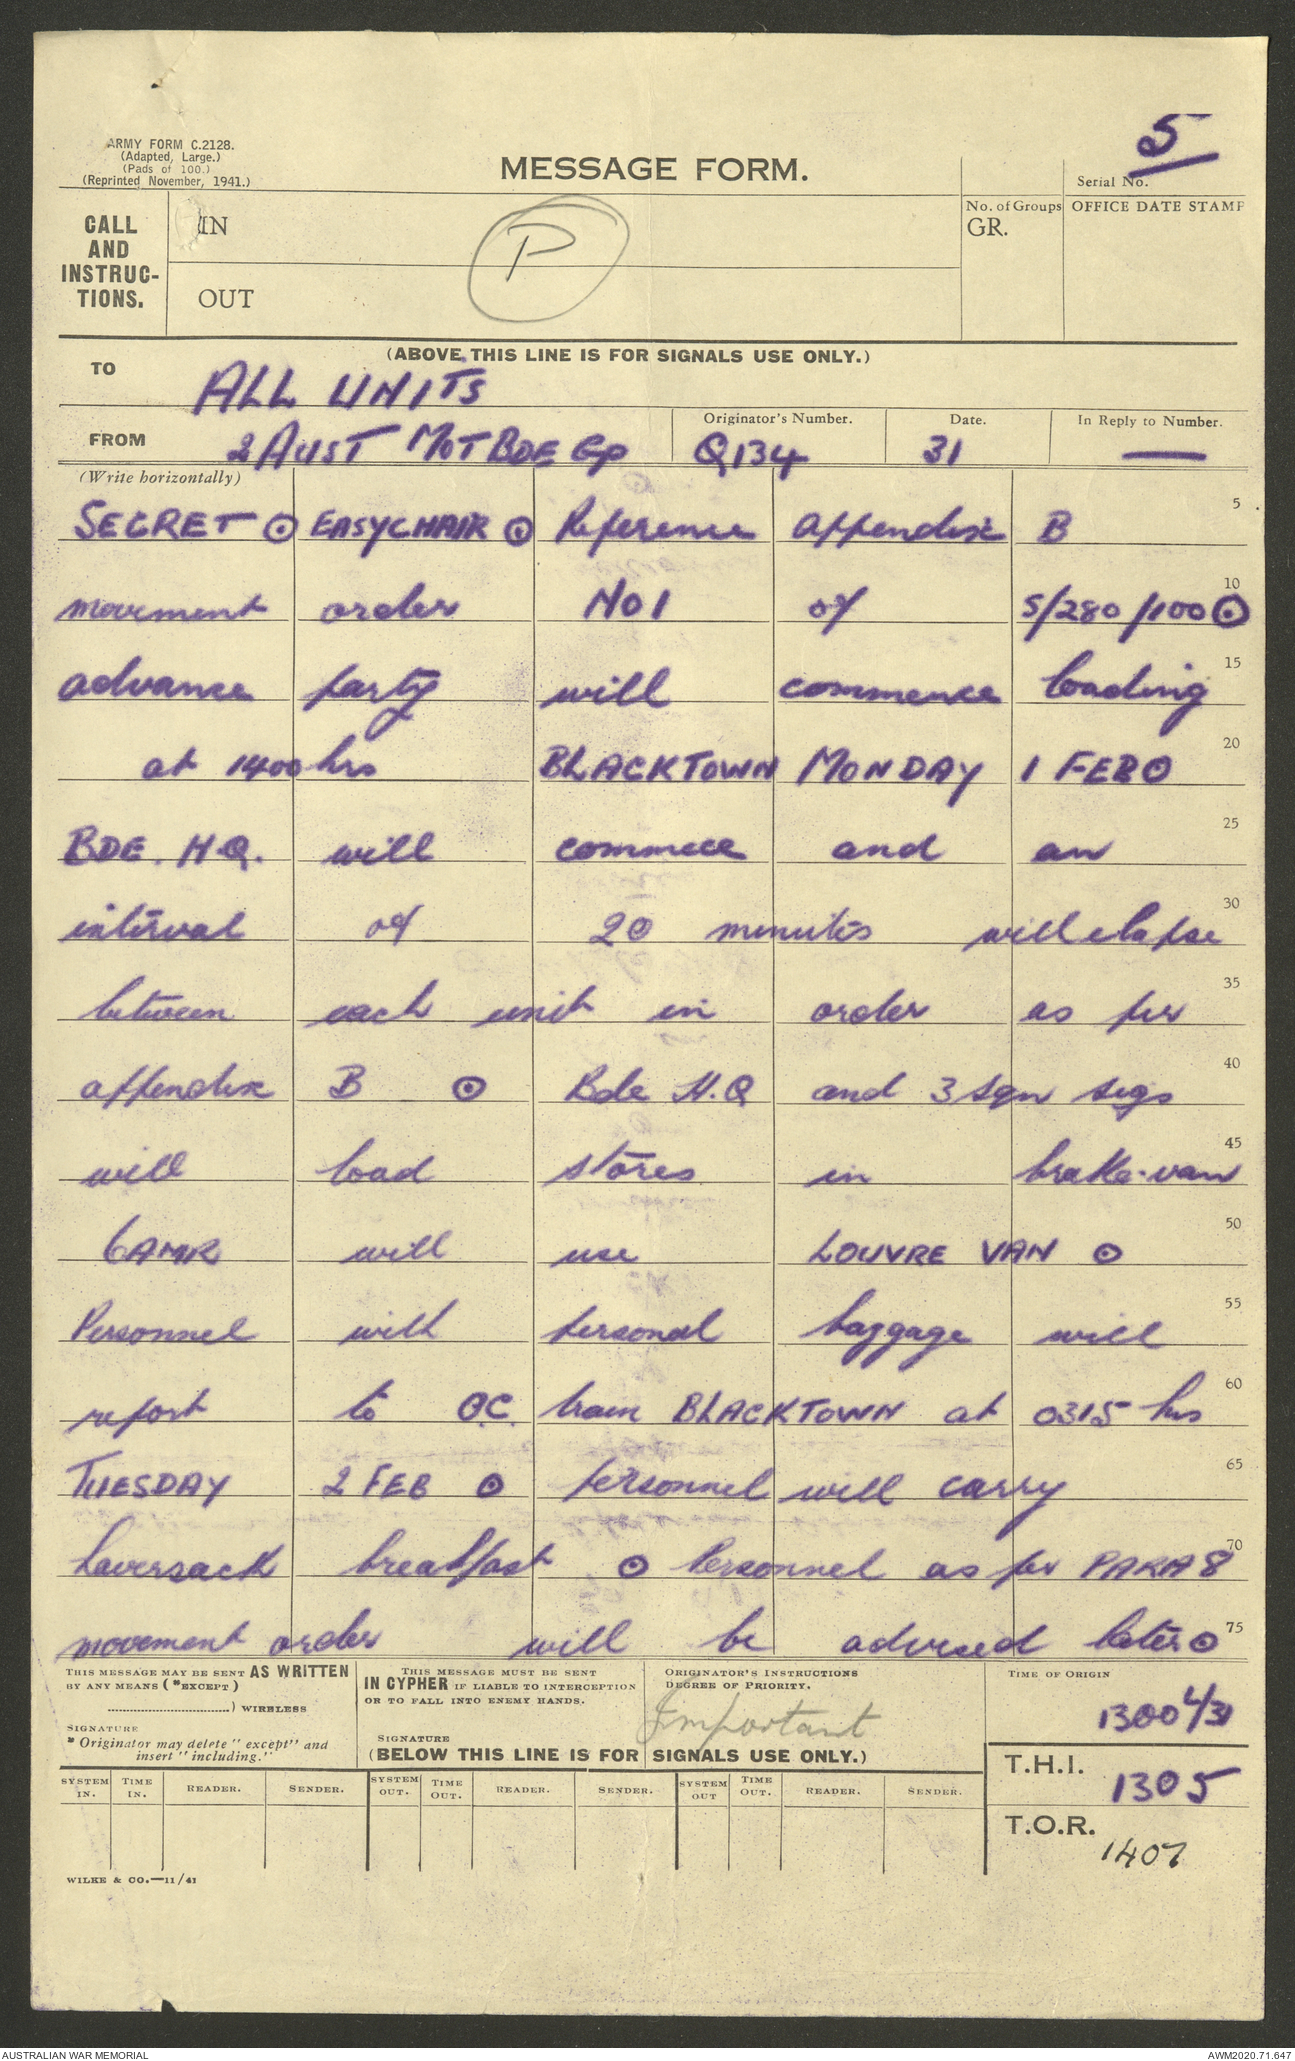 5
ARMY FORM C.2128.
(Adapted, Large.)
(Pads of 100.)
(Reprinted November, 1941.)
MESSAGE FORM.
Serial No.
CALL AND INSTRUC-TIONS.
IN
P
No. of Groups
GR.
OFFICE DATE STAMP
OUT
(ABOVE THIS LINE IS FOR SIGNALS USE ONLY.)
TO ALL UNITS
FROM 2 AUST MOT BDE Gp
Originator's Number. Q134
Date. 31
In Reply to Number. —
(Write horizontally)
SECRET ⊙ EASYCHAIR ⊙ Reference appendix B 5
movement order NO1 of S/280/100 ⊙ 10
advance party will commence loading 15
at 1400 hrs BLACKTOWN MONDAY 1 FEB ⊙ 20
BDE. H.Q. will commece and an 25
interval of 20 minutes will elapse 30
between each unit in order as per 35
appendix B ⊙ Bde H.Q and 3 sqn sigs 40
will load stores in brake-van 45
6AMR will use LOUVRE VAN ⊙ 50
Personnel with personal baggage will 55
report to O.C. train BLACKTOWN at 0315 hrs 60
TUESDAY 2 FEB ⊙ personnel will carry 65
haversack breakfast ⊙ Personnel as per PARA 8 70
movement order will be advised later ⊙ 75
THIS MESSAGE MAY BE SENT AS WRITTEN
BY ANY MEANS (*EXCEPT)
) WIRELESS
SIGNATURE
* Originator may delete "except" and
insert "including."
THIS MESSAGE MUST BE SENT
IN CYPHER IF LIABLE TO INTERCEPTION
OR TO FALL INTO ENEMY HANDS.
SIGNATURE
ORIGINATOR'S INSTRUCTIONS
DEGREE OF PRIORITY.
Important
TIME OF ORIGIN
1300 L/31
(BELOW THIS LINE IS FOR SIGNALS USE ONLY.)
T.H.I. 1305
SYSTEM IN. TIME IN. READER. SENDER. SYSTEM OUT. TIME OUT. READER. SENDER. SYSTEM OUT TIME OUT. READER. SENDER.
T.O.R. 1407
WILKE & CO.—11/41
AUSTRALIAN WAR MEMORIAL
AWM2020.71.647